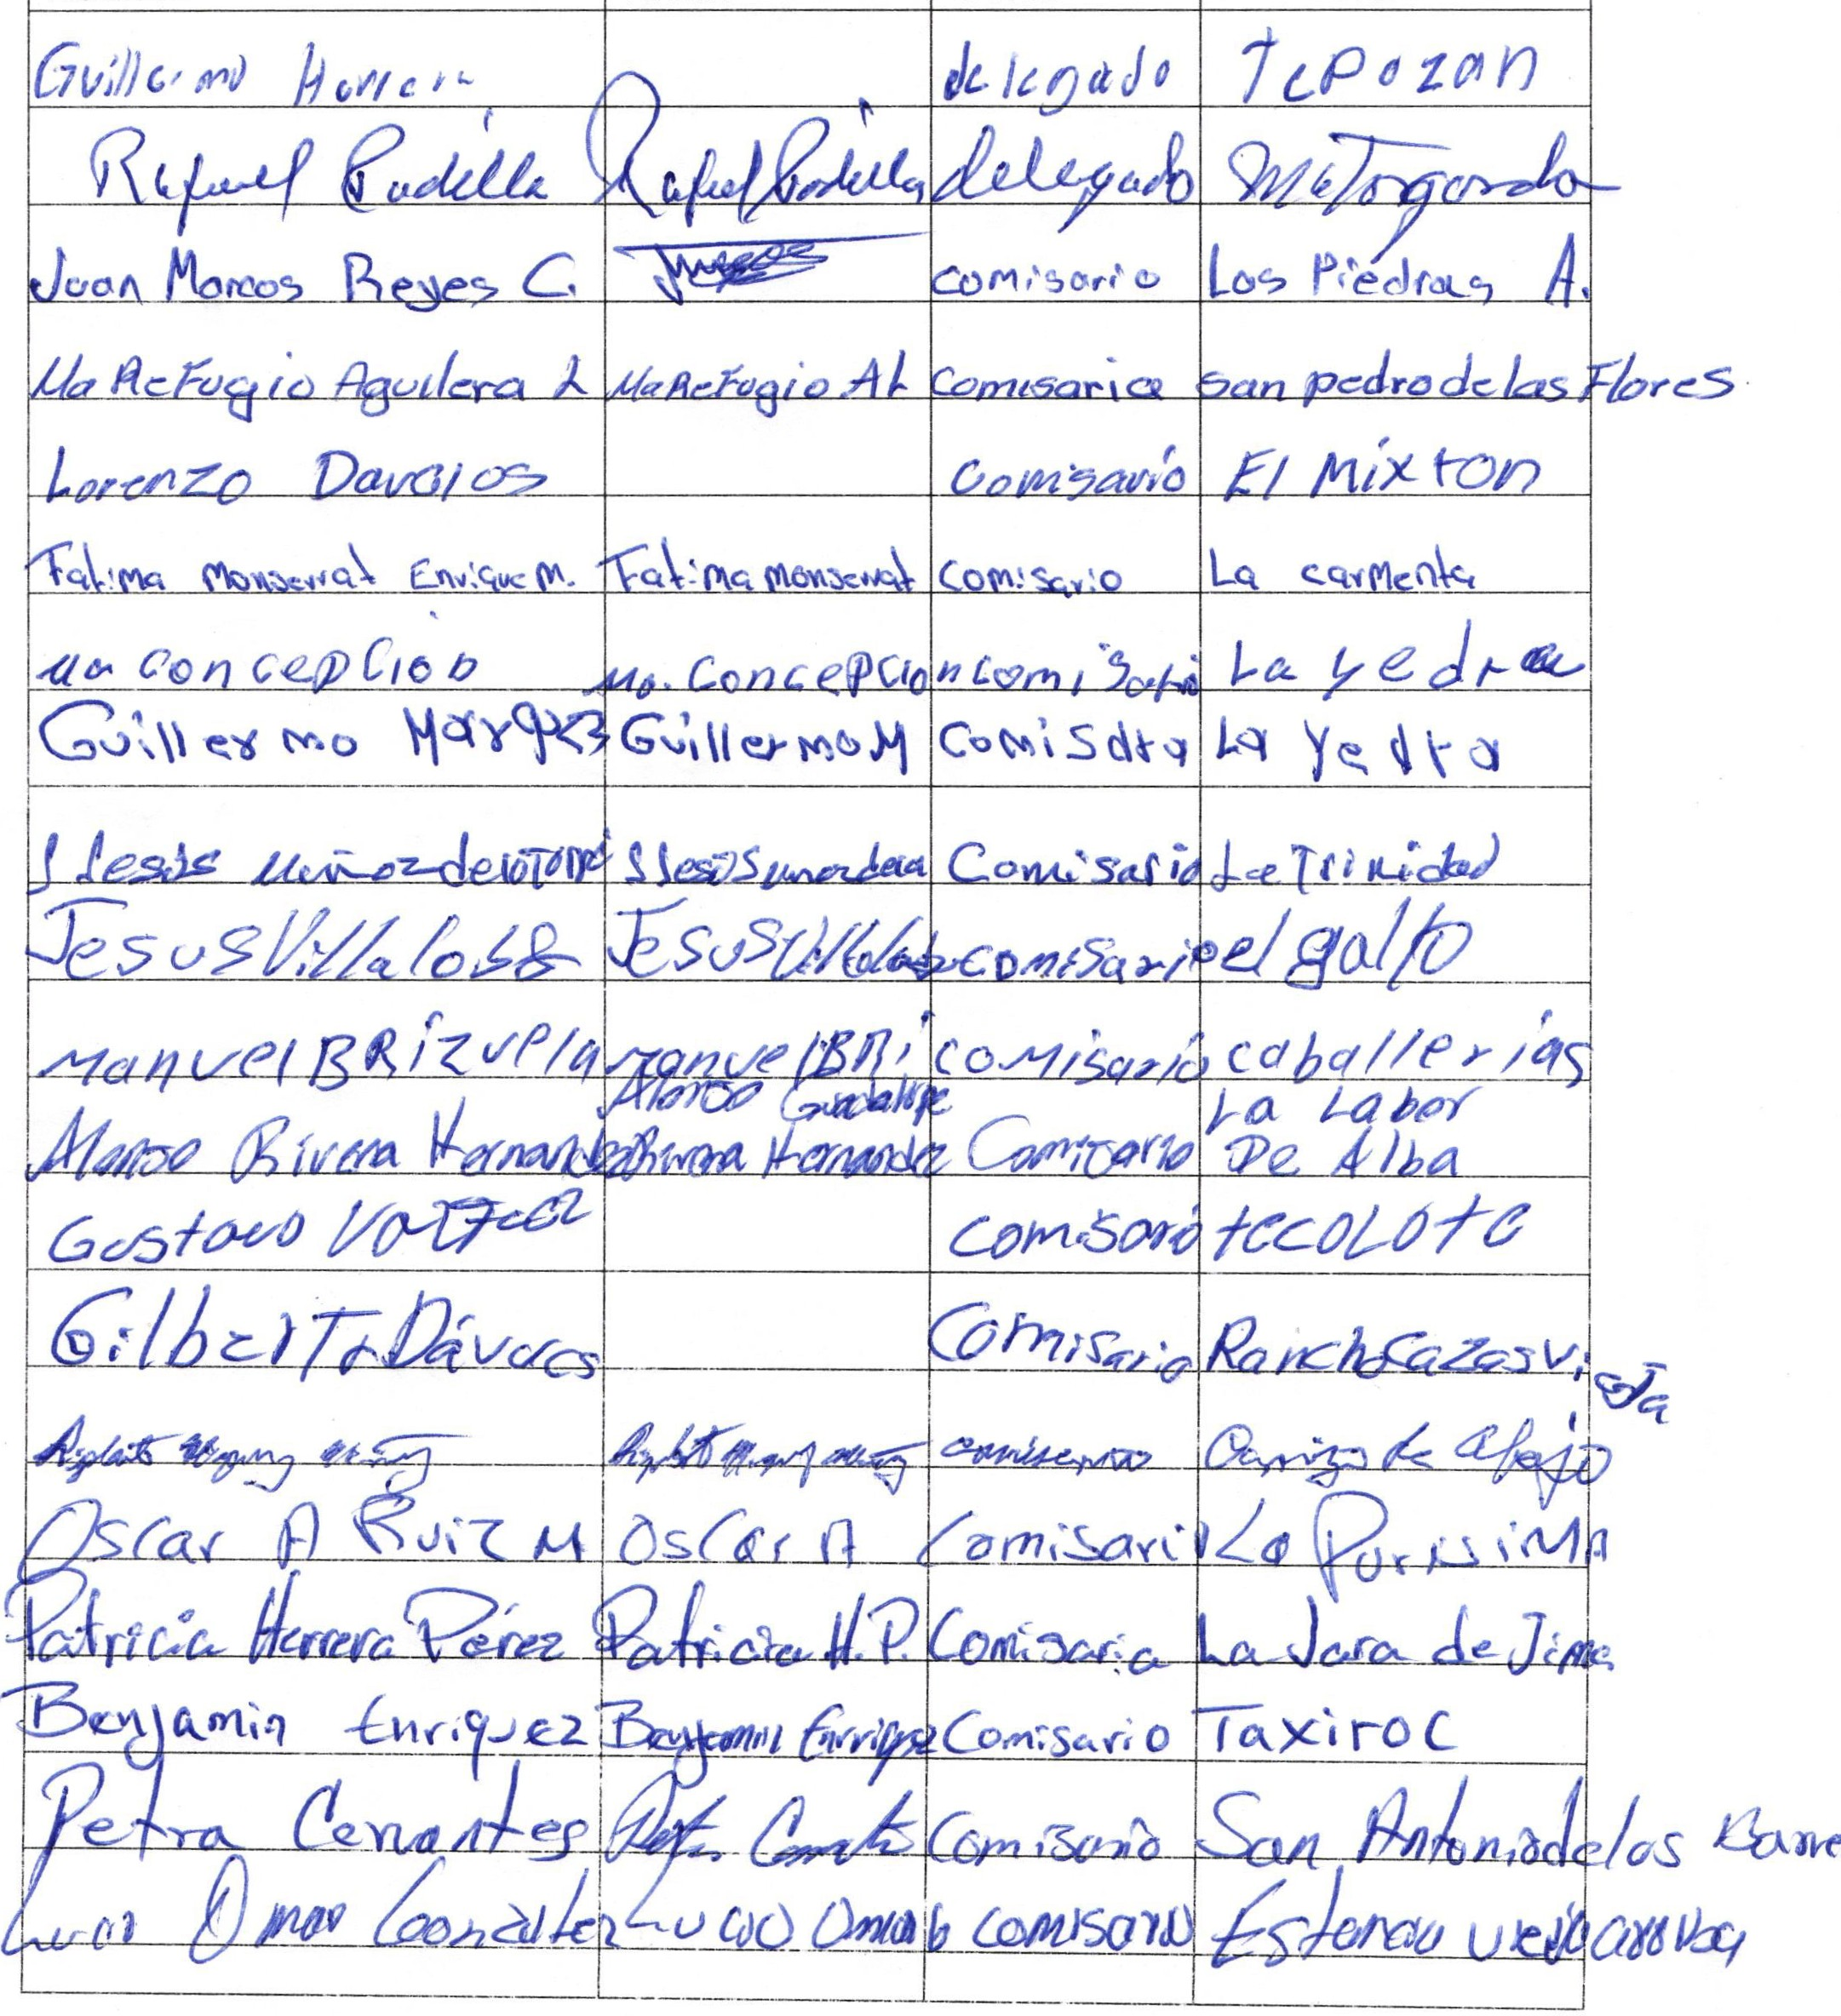 Guillermo Herrera delegado Tepozan
Rafael Padilla Rafael Padilla delegado Matagorda
Juan Marcos Reyes C. comisario Los Piedras A.
Ma Refugio Aguilera L Ma Refugio AL comisaria san pedro de las Flores
Lorenzo Davalos Comisario El Mixton
Fatima Monserrat Enrique M. Fatima monserrat comisario La carmenta
Ma concepcion Ma. Concepcion comisari La yedra
Guillermo Marquez Guillermo M comisara La Yedra
J Jesús Muñoz de la Torre J Jesús Comisario La Trinidad
Jesus Villalobos Jesus Villalobos comisario el galto
Manuel BRizuela manuel BRi comisario caballerias
Alonso Guadalupe La Labor
Alonso Rivera Hernandez Rivera Hernandez Comisario De Alba
Gustavo comisario tecolote
Gilberto Dávalos Comisario Rancho Cazas vi
sta
comisario Carrizo de abajo
Oscar A Ruiz M Oscar A Comisario La PurissiMA
Patricia Herrera Pérez Patricia H.P. Comisaria La Jara de Jima
Benjamin Enriquez Benjamin Enriquez Comisario Taxiroc
Petra Cervantes Comisario San Antonio de los Barre
Lucio Omar Gonzalez Lucio Omar G comisario